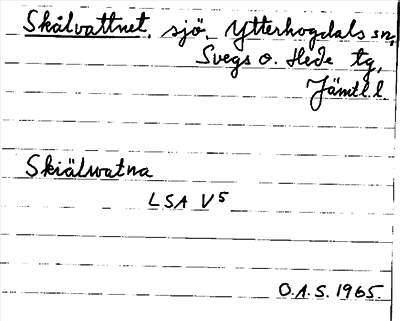 Skålvattnet, sjö, Ytterhogdals sn,
Svegs o. Hede tg,
Jämtl. l
Skiälwatna
LSA V5
O.A.S. 1965.